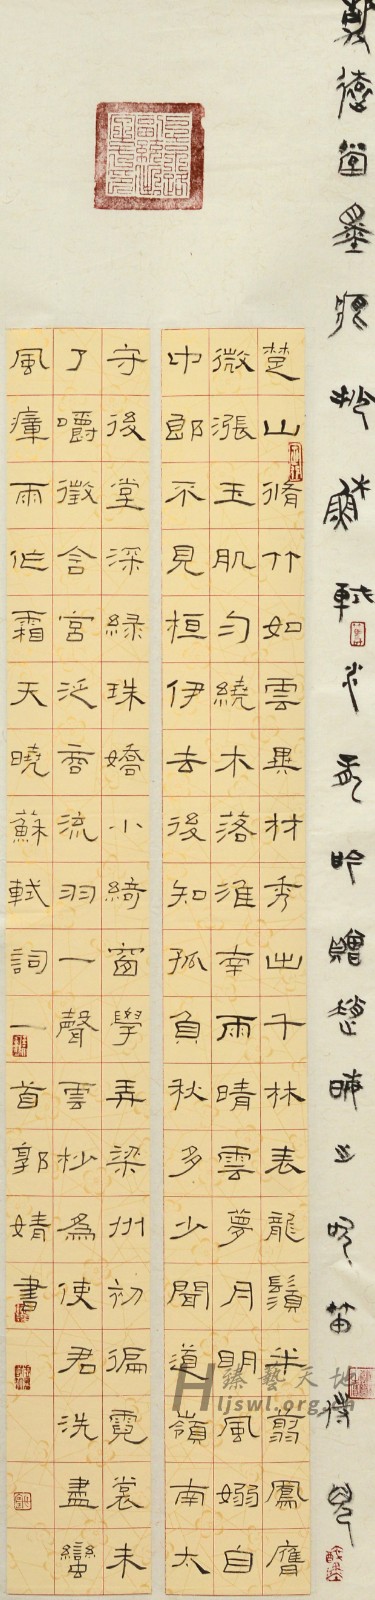 堂墨
蘇軾水龍吟贈趙晦之吹笛侍兒
楚山脩竹如雲異材秀出千林表龍鬚半翦鳳膺
微漲玉肌勻繞木落淮南雨晴雲夢月明風嫋自
中郎不見桓伊去後知孤負秋多少聞道嶺南太
守後堂深緑珠嬌小綺窗學弄梁州初徧霓裳未
了嚼徵含宮泛商流羽一聲雲杪爲使君洗盡蠻
風瘴雨作霜天曉蘇軾詞一首郭婧書
臻藝天地